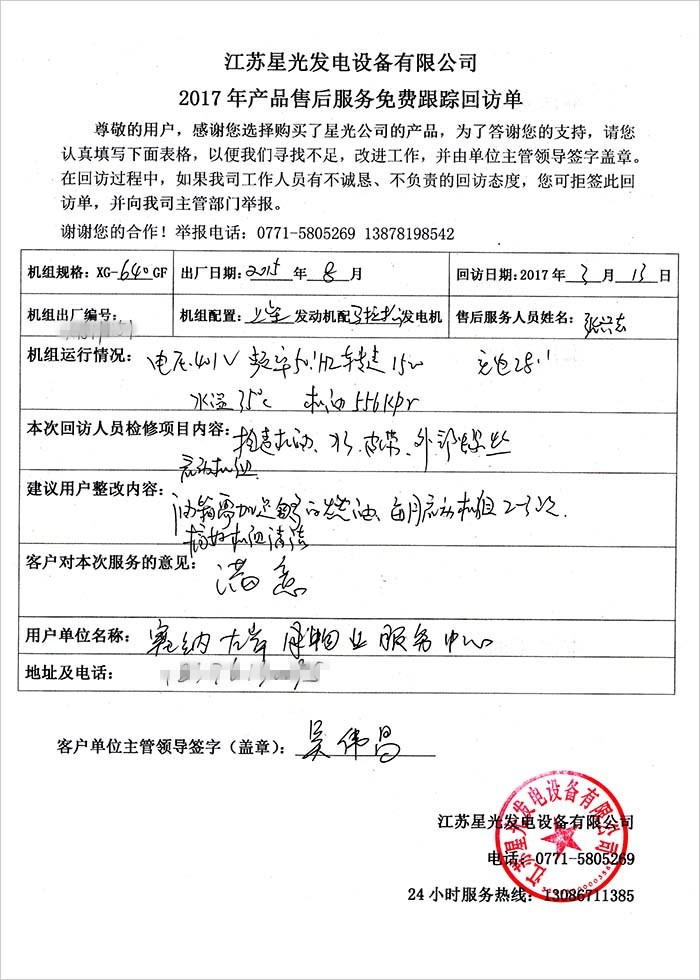 江苏星光发电设备有限公司
2017年产品售后服务免费跟踪回访单
尊敬的用户，感谢您选择购买了星光公司的产品，为了答谢您的支持，请您
认真填写下面表格，以便我们寻找不足，改进工作，并由单位主管领导签字盖章。
在回访过程中，如果我司工作人员有不诚恳、不负责的回访态度，您可拒签此回
访单，并向我司主管部门举报。
谢谢您的合作！举报电话：0771-5805269 13878198542
机组规格：XG-640GF 出厂日期：2015年8月 回访日期：2017年3月13日
机组出厂编号： 机组配置：上柴发动机配马拉松发电机 售后服务人员姓名：
机组运行情况：电压401V 频率50.1HZ 转速1500 充电28.1
水温35℃ 机油556kpa
本次回访人员检修项目内容：检查机油、水、皮带、外部螺丝
启动机组
建议用户整改内容：油箱需加足够的燃油、每月启动机组2-3次.
搞好机组清洁
客户对本次服务的意见：满意
用户单位名称：塞纳左岸 物业服务中心
地址及电话：
客户单位主管领导签字（盖章）：吴伟昌
江苏星光发电设备有限公司
电话：0771-5805269
24小时服务热线：13086711385
江苏星光发电设备有限公司